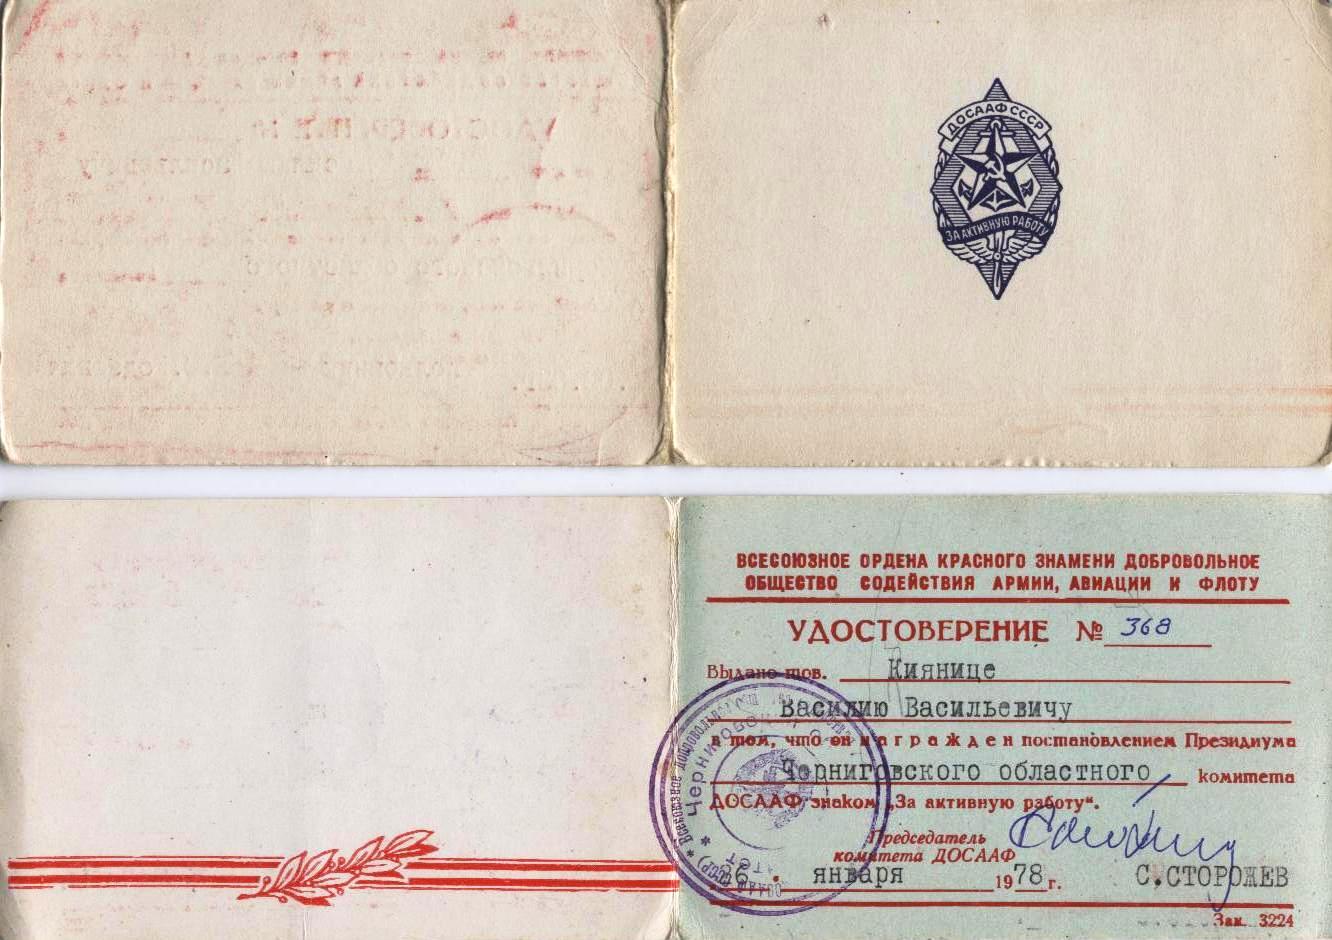 ДОСААФ СССР
ЗА АКТИВНУЮ РАБОТУ
ВСЕСОЮЗНОЕ ОРДЕНА КРАСНОГО ЗНАМЕНИ ДОБРОВОЛЬНОЕ
ОБЩЕСТВО СОДЕЙСТВИЯ АРМИИ, АВИАЦИИ И ФЛОТУ
УДОСТОВЕРЕНИЕ № 368
Выдано тов. Киянице
Василию Васильевичу
в том, что он награжден постановлением Президиума
Черниговского областного комитета
ДОСААФ знаком „За активную работу“.
Председатель
комитета ДОСААФ
26 . января 1978 г. С.СТОРОЖЕВ
Зак. 3224